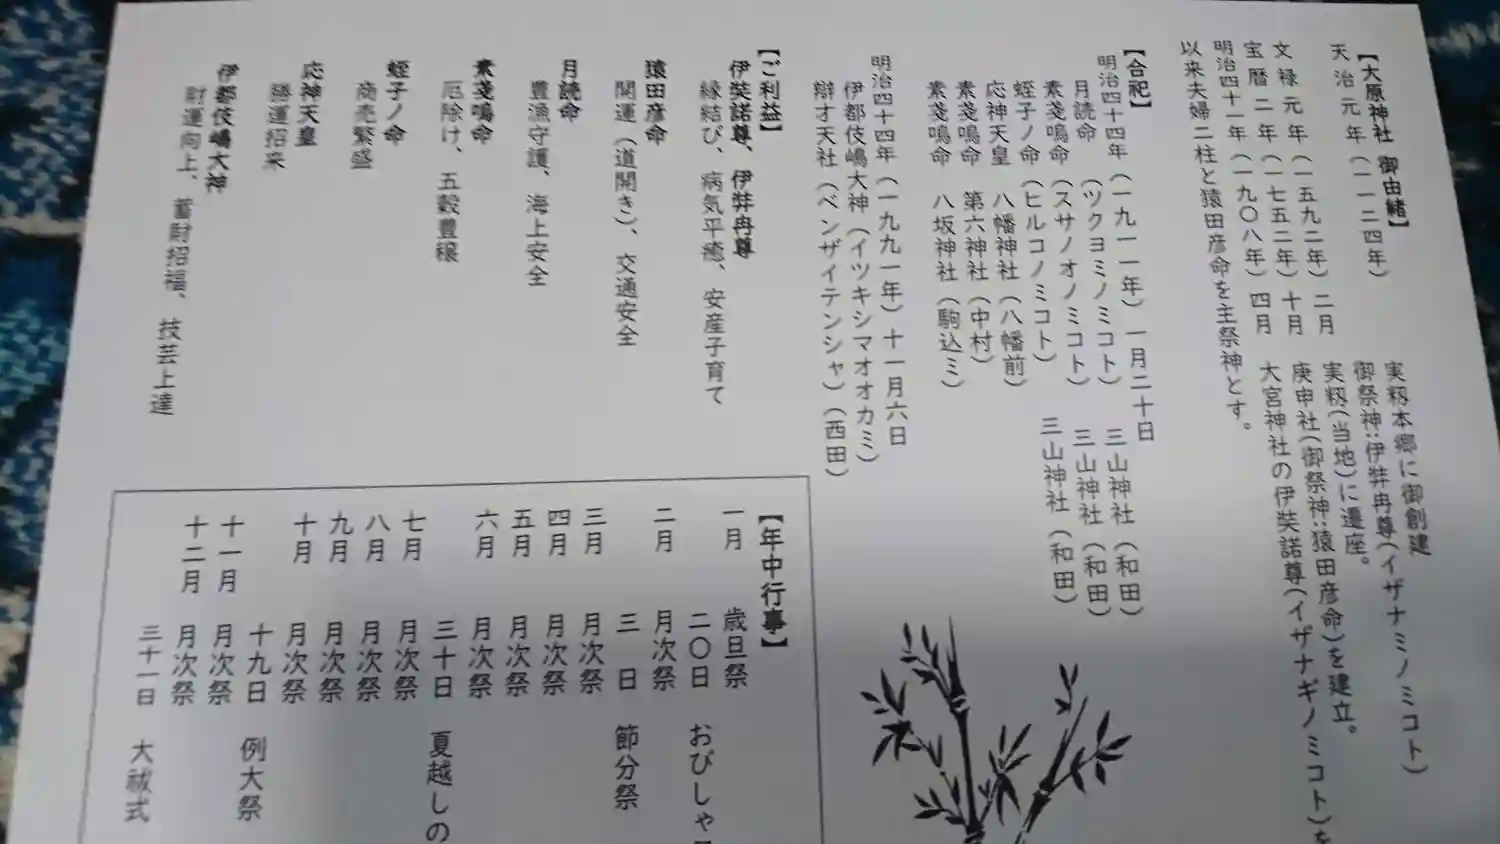 【大原神社 御由緒】
天治元年(一一二四年) 実籾本郷に御創建
御祭神:伊弉冉尊(イザナミノミコト)
文禄元年(一五九二年)二月 実籾(当地)に遷座。
宝暦二年(一七五二年)十月 庚申社(御祭神:猿田彦命)を建立。
明治四十一年(一九〇八年)四月 大宮神社の伊弉諾尊(イザナギノミコト)を
以来夫婦二柱と猿田彦命を主祭神とす。
【合祀】
明治四十四年(一九一一年)一月二十日
月読命(ツクヨミノミコト) 三山神社(和田)
素戔鳴命(スサノオノミコト) 三山神社(和田)
蛭子ノ命(ヒルコノミコト) 三山神社(和田)
応神天皇 八幡神社(八幡前)
素戔鳴命 第六神社(中村)
素戔鳴命 八坂神社(駒込ミ)
明治四十四年(一九九一年)十一月六日
伊都伎嶋大神(イツキシマオオカミ)
辯才天社(ベンザイテンシャ)(西田)
【ご利益】
伊弉諾尊、伊弉冉尊
縁結び、病気平癒、安産子育て
猿田彦命
開運(道開き)、交通安全
月読命
豊漁守護、海上安全
素戔鳴命
厄除け、五穀豊穣
蛭子ノ命
商売繁盛
応神天皇
勝運招来
伊都伎嶋大神
財運向上、蓄財招福、技芸上達
【年中行事】
一月 歳旦祭
二〇日 おびしゃ
二月 月次祭
三日 節分祭
三月 月次祭
四月 月次祭
五月 月次祭
六月 月次祭
三十日 夏越しの
七月 月次祭
八月 月次祭
九月 月次祭
十月 月次祭
十九日 例大祭
十一月 月次祭
十二月 月次祭
三十一日 大祓式